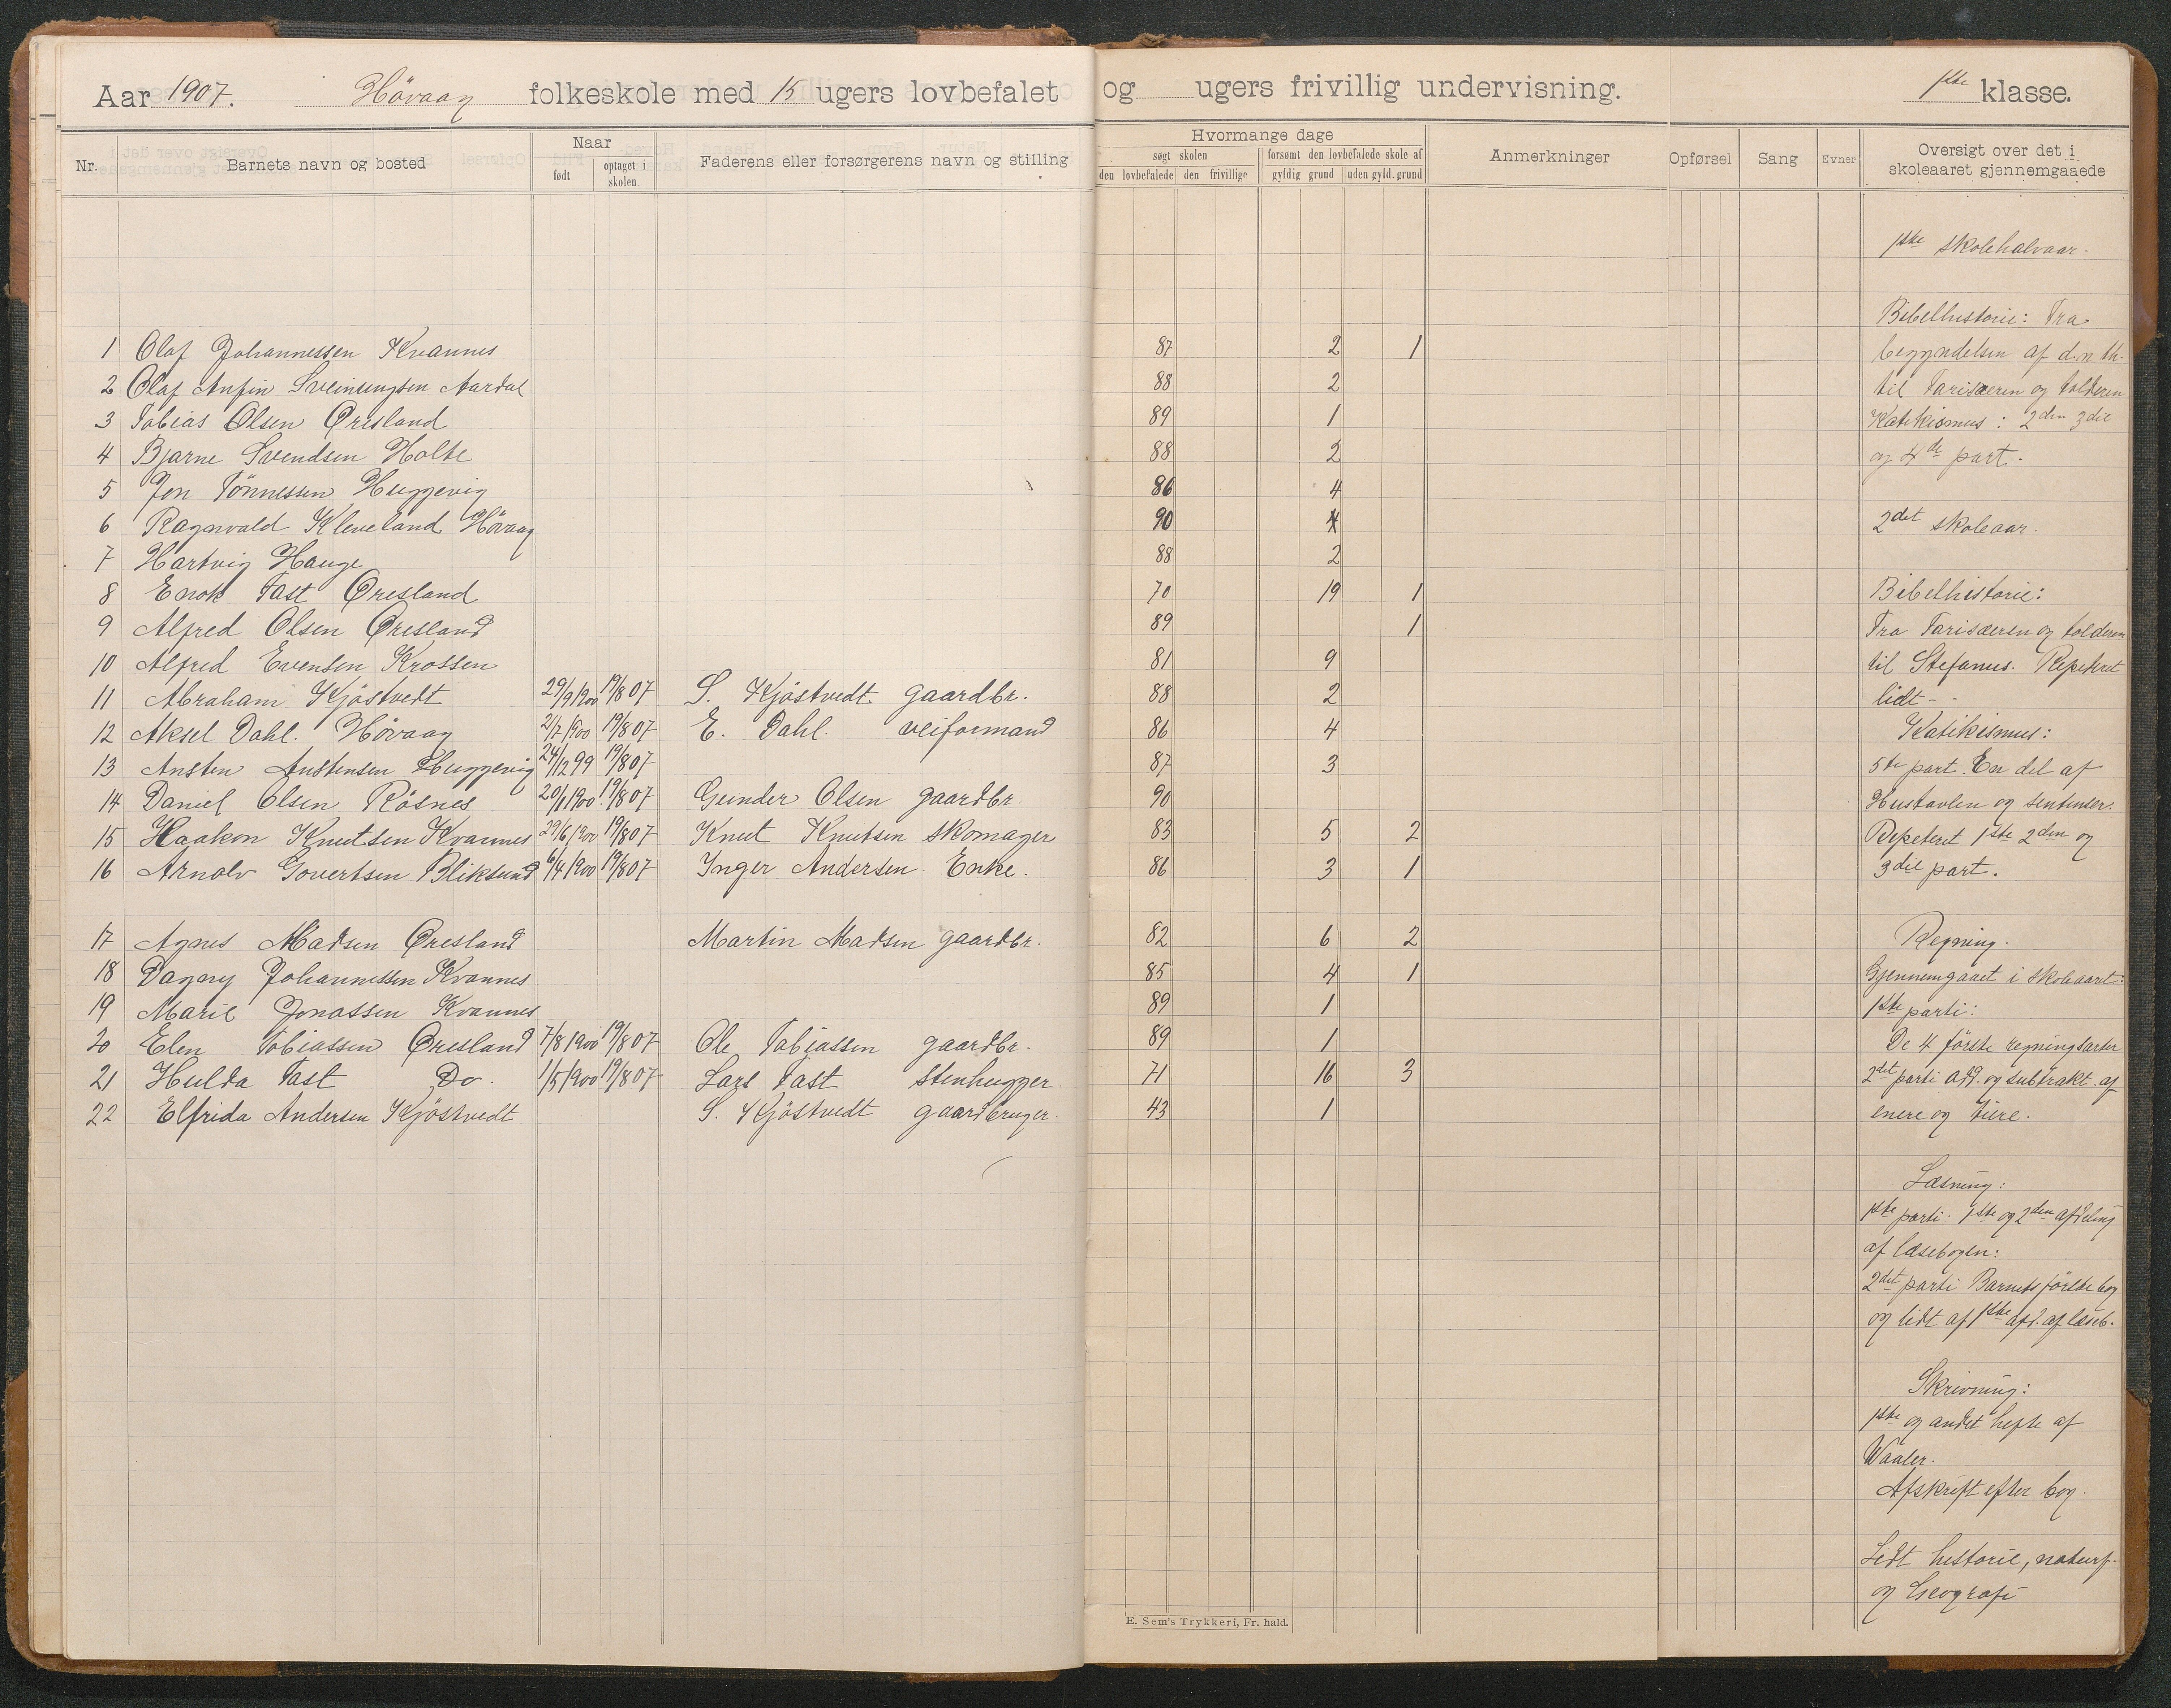 Aar 1907. Høvaag folkeskole med 15 ugers lovbefalet og ugers frivillig undervisning. 1ste klasse.
Nr. Barnets navn og bosted Naar født optaget i skolen. Faderens eller forsørgerens navn og stilling Hvormange dage søgt skolen den lovbefalede den frivillige forsømt den lovbefalede skole af gyldig grund uden gyld. grund Anmerkninger Opførsel Sang Evner Oversigt over det i skoleaaret gjennemgaaede
1 Olaf Johannessen Kvannes 87 2 1
2 Olaf Anfin Sveinungsen Aardal 88 2
3 Tobias Olsen Øresland 89 1
4 Bjarne Svendsen Holte 88 2
5 Jon Tönnessen Huggevig 86 4
6 Ragnvald Kleveland Høvaag 90
7 Hartvig Hauge 88 2
8 Enok Fast Øresland 70 19 1
9 Alfred Olsen Øresland 89 1
10 Alfred Evensen Krossen 81 9
11 Abraham Kjöstvedt 29/9 1900 19/8 07 S. Kjöstvedt gaardbr. 88 2
12 Aksel Dahl. Høvaag 2/7 1900 19/8 07 E. Dahl. veiformand 86 4
13 Ansten Anstensen Huggevig 24/12 99 19/8 07 87 3
14 Daniel Olsen Røsnes 20/1 1900 19/8 07 Geinder Olsen gaardbr. 90
15 Haakon Knutsen Kvannes 29/6 1900 19/8 07 Knut Knutsen skomager 83 5 2
16 Arnolv Govertsen Bliksund 6/4 1900 19/8 07 Inger Andersen Enke. 86 3 1
17 Agnes Madsen Øresland Martin Madsen gaardbr. 82 6 2
18 Dagny Johannessen Kvannes 85 4 1
19 Marie Jonassen Kvannes 89 1
20 Elen Tobiassen Øresland 7/8 1900 19/8 07 Ole Tobiassen gaardbr. 89 1
21 Hulda Fast Do. 1/5 1900 19/8 07 Lars Fast stenhugger 71 16 3
22 Elfrida Andersen Kjöstvedt S. Kjöstvedt gaardbruger. 43 1
1ste skolehalvaar.
Bibelhistorie: Fra
begyndelsen af d. n. th.
til Farisæeren og tolderen
Katekismus: 2den 3die
og 4de part.
2det skoleaar.
Bibelhistorie:
Fra Farisæeren og tolderen
til Stefanus. Repeteret
lidt -
Katekismus:
5te part. En del af
Hustavlen og sentenser.
Repeteret 1ste 2den og
3die part.
Regning.
Gjennemgaaet i skoleaaret:
1ste parti:
De 4 første regningsarter
2det parti add. og subtrakt. af
enere og tiere.
Læsning:
1ste parti. 1ste og 2den afdeling
af læsebogen:
2det parti Barnets første bog
og lidt af 1ste afd. af læseb.
Skrivning:
1ste og andet hefte af
Waaler.
Afskrift efter bog.
Lidt historie, naturf.
og Geografi
E. Sem's Trykkeri, Fr. hald.